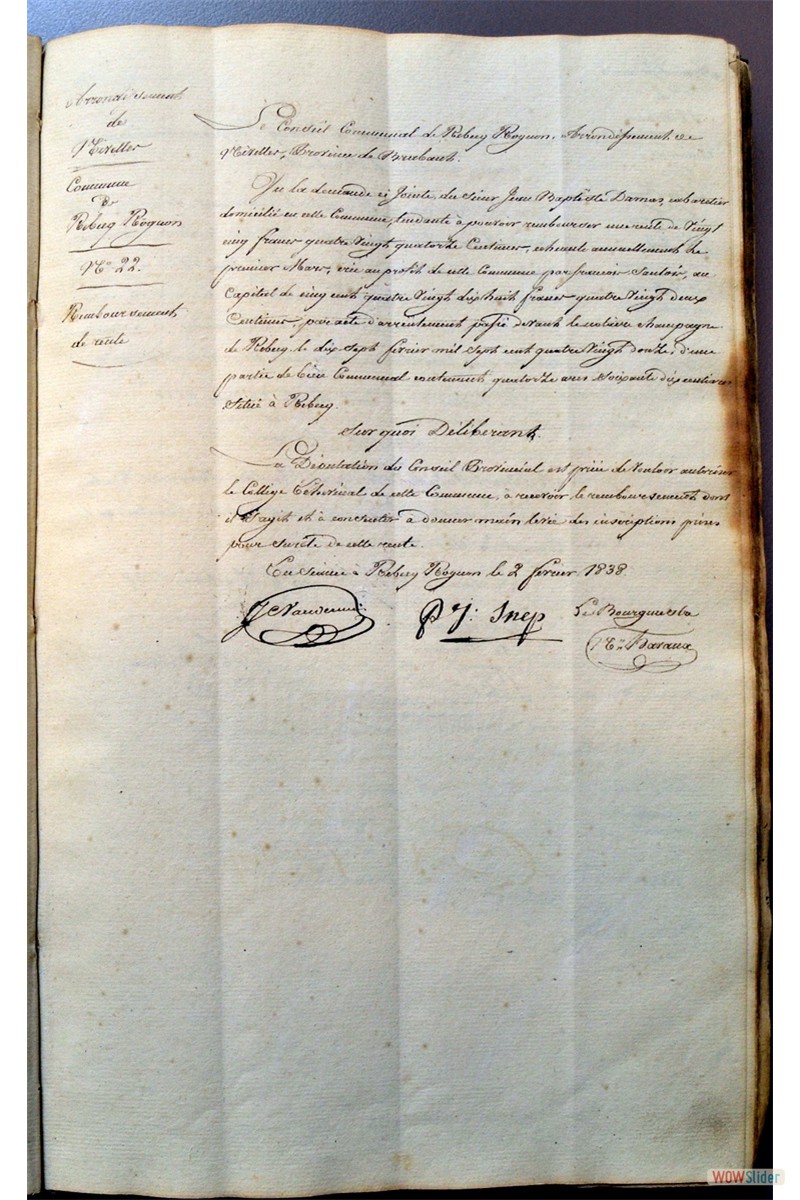 Arrondissement
de
Nivelles
Commune
de
Rebecq Rognon
N° 22.
Remboursement
de rente
Le Conseil Communal de Rebecq Rognon, Arrondissement de
Nivelles, Province de Brabant.
Vu la demande ci Jointe, du Sieur Jean Baptiste Damas, cabaretier
domicilié en cette Commune, tendante à pouvoir rembourser une rente de Vingt
cinq francs quatre Vingt quatorze Centimes, echeante annuellement le
premier Mars, crée au profit de cette Commune par francois au
Capital de cinq cent quatre Vingt dix huit francs quatre Vingt deux
Centimes, par acte d'arrentement passé devant le notaire Champagne
de Rebecq, le dix sept fevrier mil sept cent quatre Vingt douze, d'une
partie de Communal contenant quatorze ares Soixante dix centiares
Situé à Rebecq.
Sur quoi Délibérant,
La Députation du Conseil Provincial est priée de vouloir autoriser
le Collège Echevinal de cette Commune, à recevoir le remboursement dont
il S'agit et à consentir à donner main levée des inscriptions prises
pour Sureté de cette rente.
En Séance à Rebecq Rognon le 2 fevrier 1838.
P J: Snep
Le Bourguemestre
WOWSlider